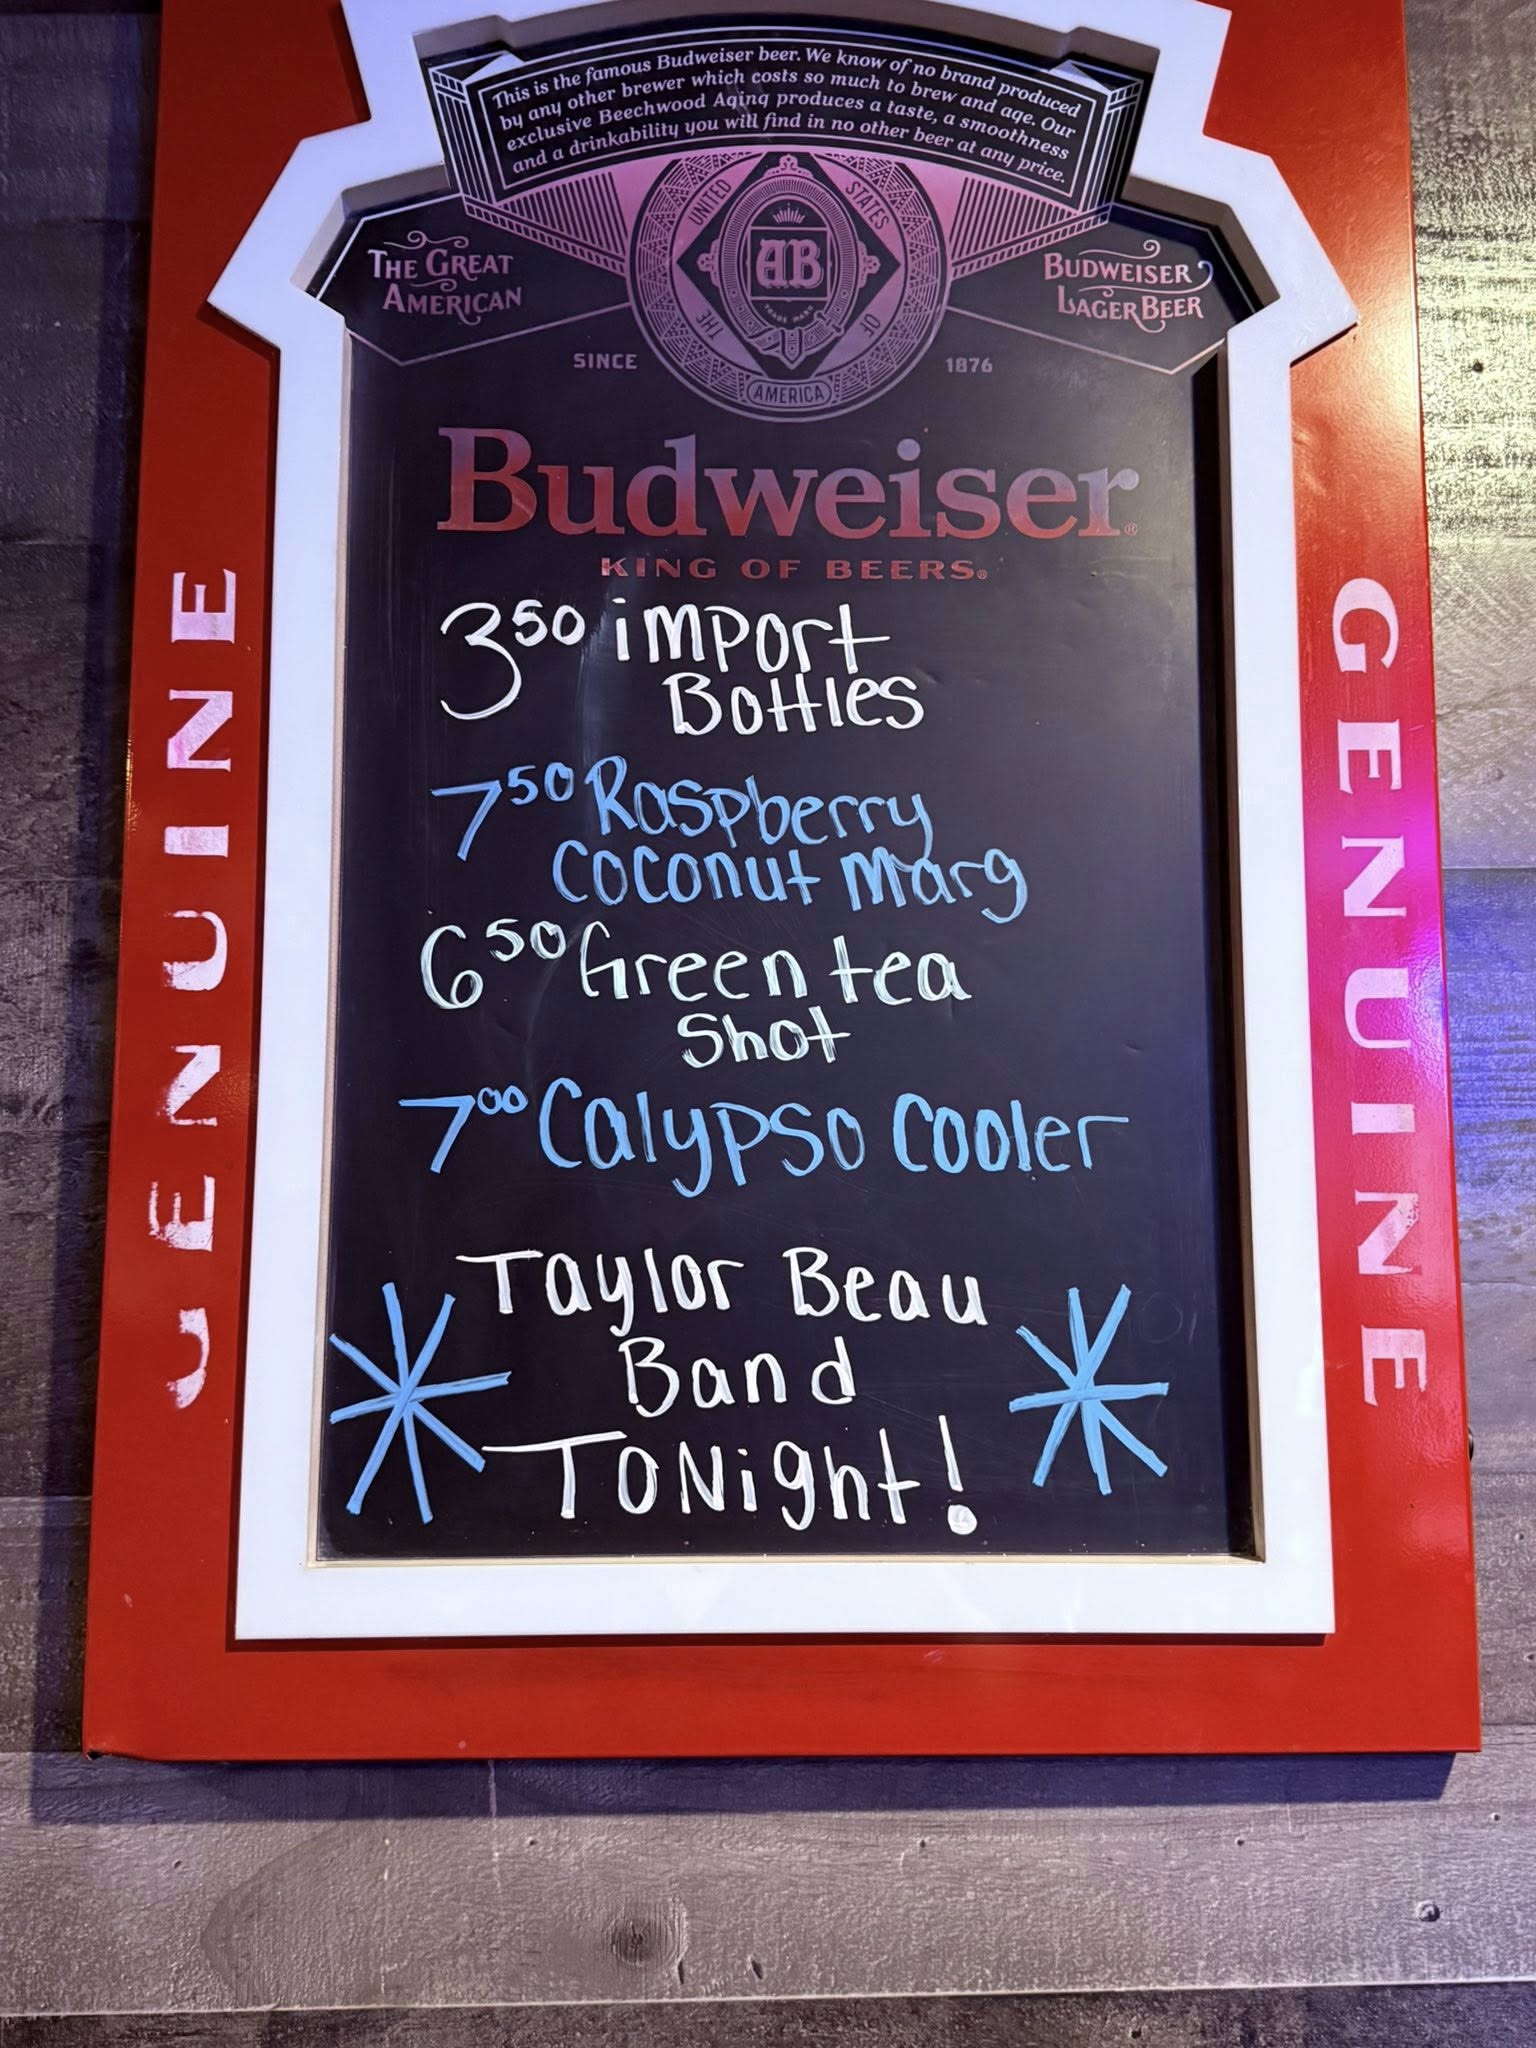 This is the famous Budweiser beer. We know of no brand produced
by any other brewer which costs so much to brew and age. Our
exclusive Beechwood Aging produces a taste, a smoothness
and a drinkability you will find in no other beer at any price.
THE GREAT
AMERICAN
UNITED STATES OF AMERICA THE
AB
TRADE MARK
BUDWEISER
LAGER BEER
SINCE 1876
Budweiser®
KING OF BEERS®
3⁵⁰ import
Bottles
7⁵⁰ Raspberry
Coconut Marg
6⁵⁰ Green tea
Shot
7⁰⁰ Calypso Cooler
Taylor Beau
Band
TONight!
GENUINE
GENUINE